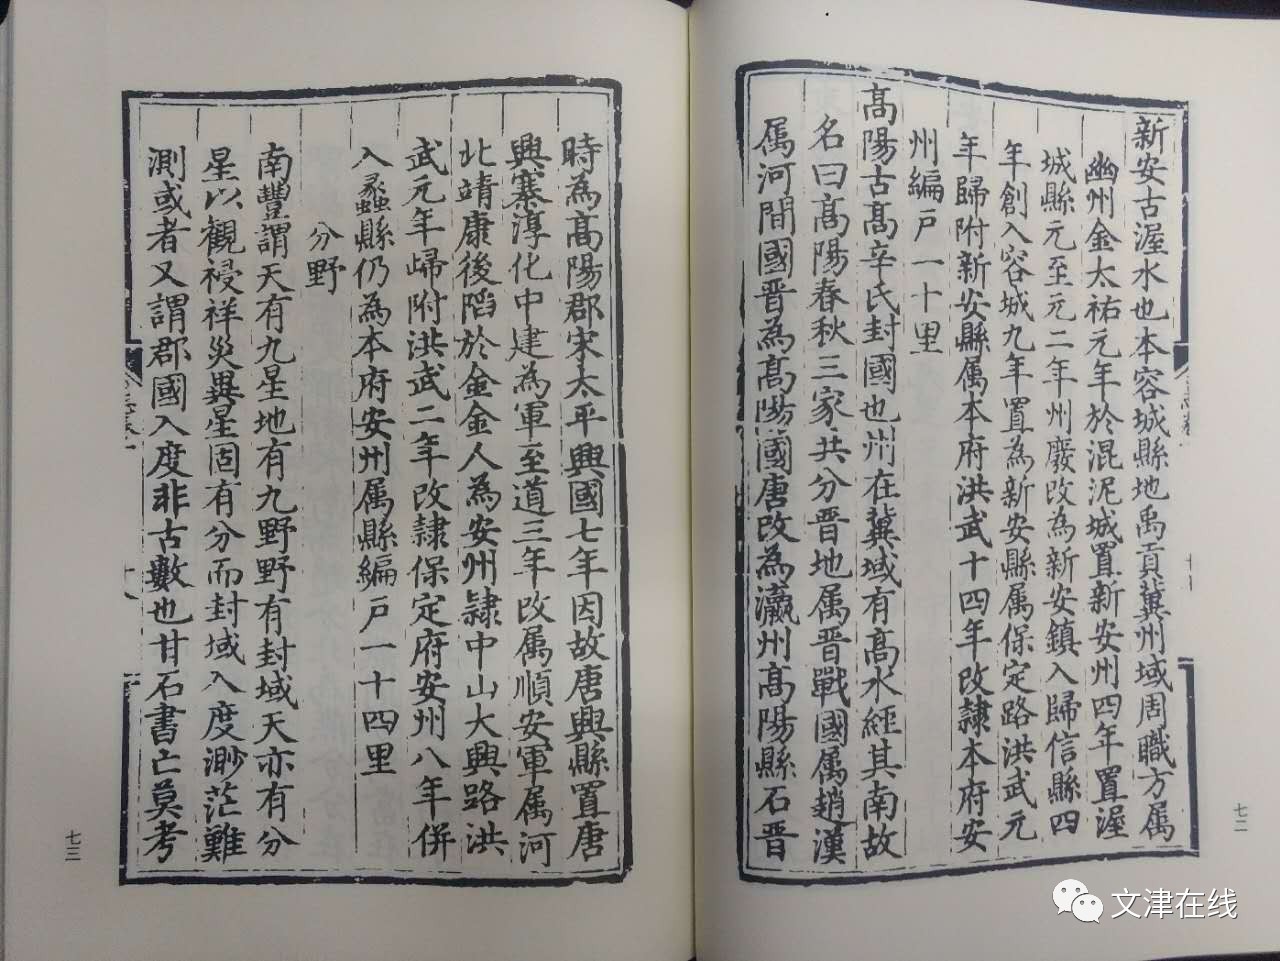 新安古渥水也本容城縣地禹貢冀州域周職方屬
幽州金太祐元年於混泥城置新安州四年置渥
城縣元至元二年州廢改為新安鎮入歸信縣四
年創入容城九年置為新安縣属保定路洪武元
年歸附新安縣属本府洪武十四年改隷本府安
州編戸一十里
髙陽古髙辛氏封國也州在冀域有髙水經其南故
名曰髙陽春秋三家共分晋地属晋戰國属趙漢
属河間國晋為髙陽國唐改為瀛州髙陽縣石晋
七二
時為髙陽郡宋太平興國七年因故唐興縣置唐
興寨淳化中建為軍至道三年改属順安軍属河
北靖康後陷於金金人為安州隷中山大興路洪
武元年歸附洪武二年改隷保定府安州八年併
入蠡縣仍為本府安州属縣編戸一十四里
分野
南豐謂天有九星地有九野野有封域天亦有分
星以觀祲祥災異星固有分而封域入度渺茫難
測或者又謂郡國入度非古數也甘石書亡莫考
七三
文津在线